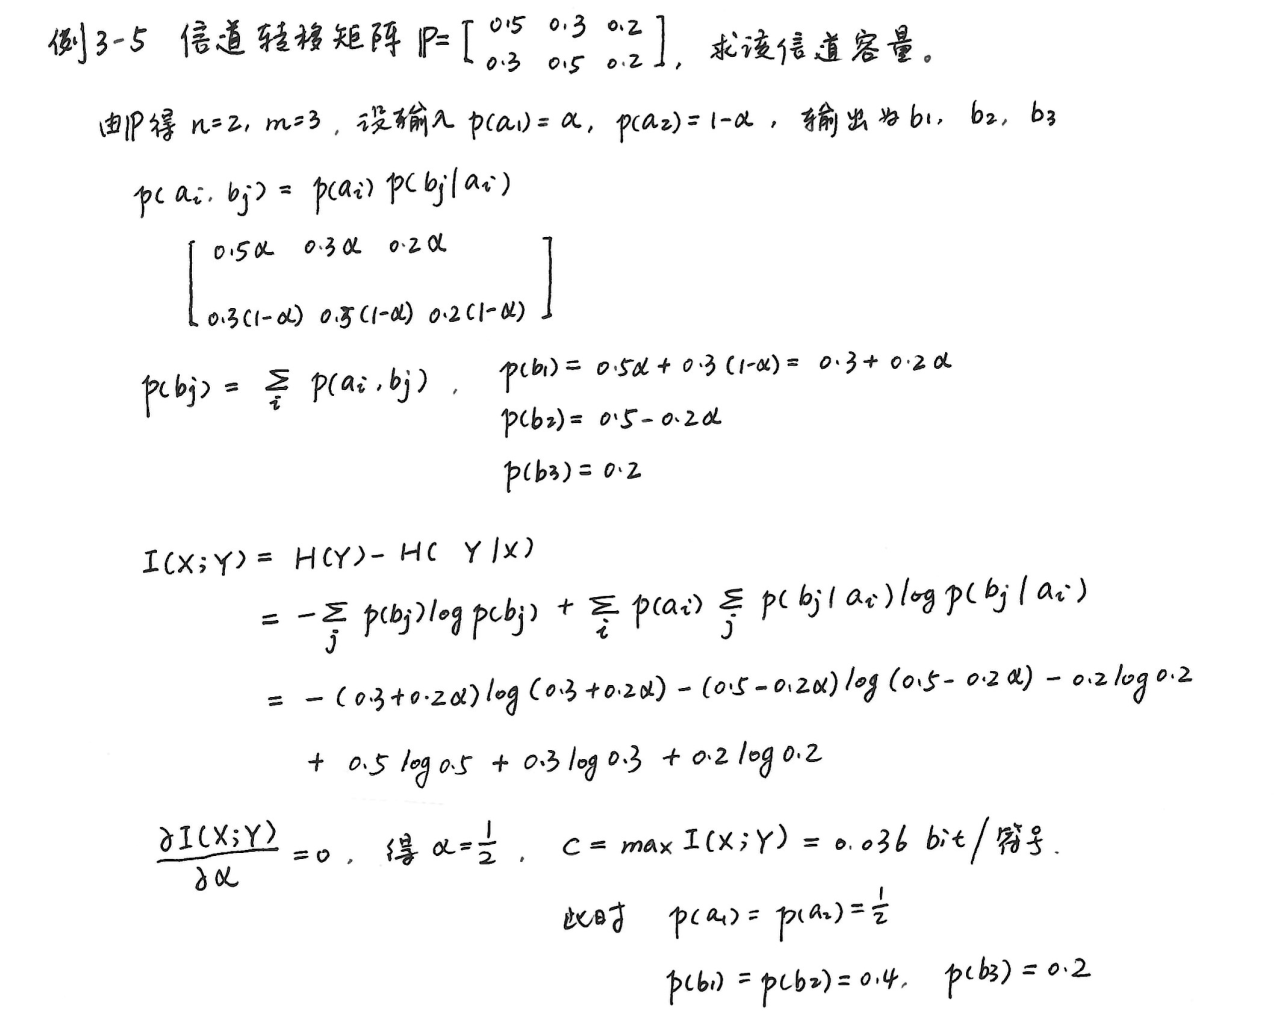 例3-5 信道转移矩阵 P=[0.5 0.3 0.2
0.3 0.5 0.2], 求该信道容量。
由P得 n=2, m=3, 设输入 p(a1)=α, p(a2)=1-α, 输出为 b1, b2, b3
p(ai, bj) = p(ai) p(bj|ai)
[0.5α 0.3α 0.2α
0.3(1-α) 0.5(1-α) 0.2(1-α)]
p(bj) = Σi p(ai, bj), p(b1) = 0.5α + 0.3(1-α) = 0.3 + 0.2α
p(b2) = 0.5 - 0.2α
p(b3) = 0.2
I(X;Y) = H(Y) - H(Y|X)
= -Σj p(bj) log p(bj) + Σi p(ai) Σj p(bj|ai) log p(bj|ai)
= -(0.3+0.2α) log(0.3+0.2α) - (0.5-0.2α) log(0.5-0.2α) - 0.2 log 0.2
+ 0.5 log 0.5 + 0.3 log 0.3 + 0.2 log 0.2
∂I(X;Y)/∂α = 0, 得 α = 1/2, C = max I(X;Y) = 0.036 bit/符号.
此时 p(a1) = p(a2) = 1/2
p(b1) = p(b2) = 0.4, p(b3) = 0.2